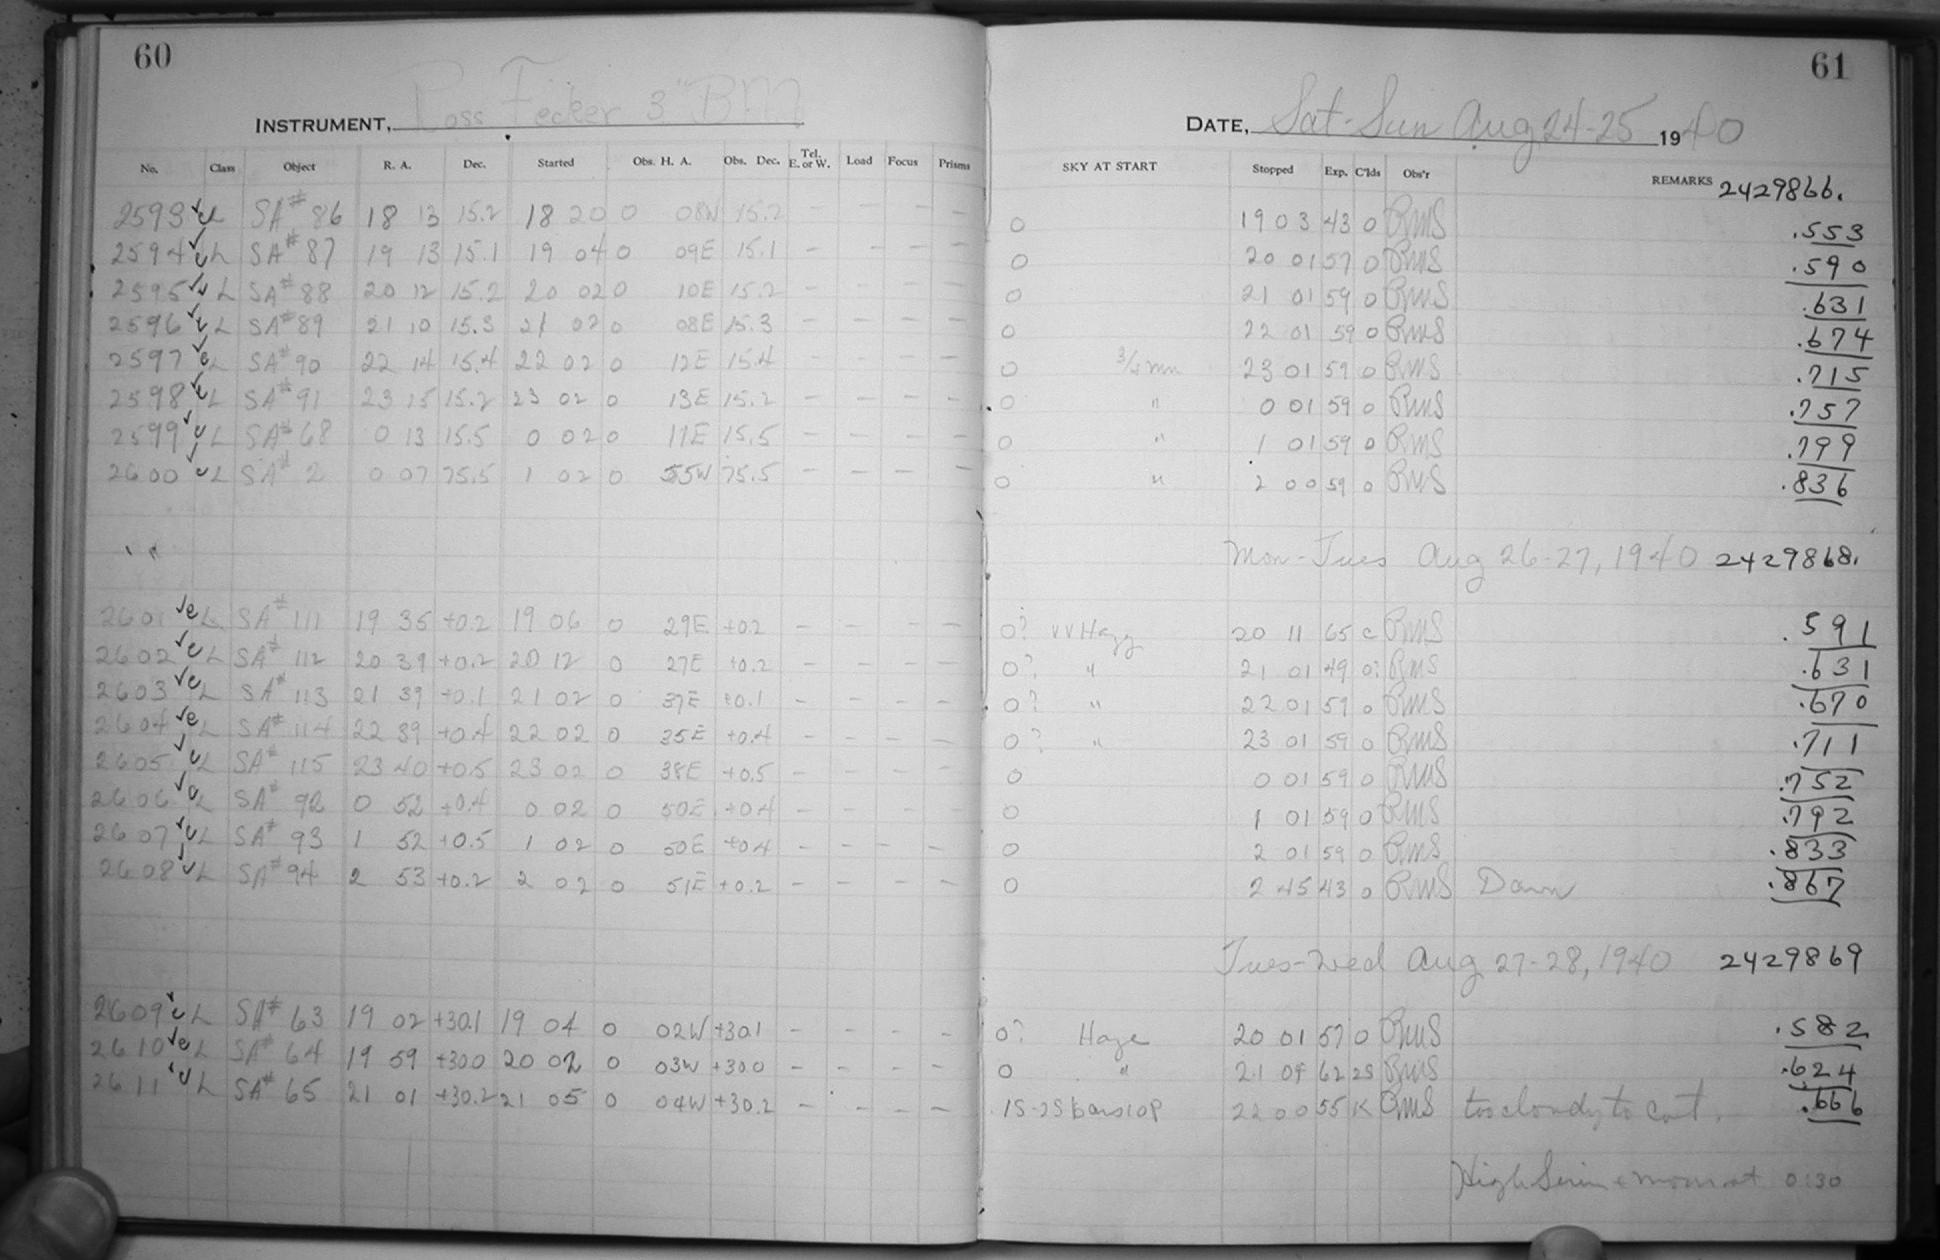 60
INSTRUMENT, Ross Fecker 3" BM
No. Class Object R. A. Dec. Started Obs. H. A. Obs. Dec. Tel. E. or W. Load Focus Prisms
2593 L SA# 86 18 13 15.2 18 20 0 08W 15.2 – – – –
2594 L SA# 87 19 13 15.1 19 04 0 09E 15.1 – – – –
2595 L SA# 88 20 12 15.2 20 02 0 10E 15.2 – – – –
2596 L SA# 89 21 10 15.3 21 02 0 08E 15.3 – – – –
2597 L SA# 90 22 14 15.4 22 02 0 12E 15.4 – – – –
2598 L SA# 91 23 15 15.2 23 02 0 13E 15.2 – – – –
2599 L SA# 68 0 13 15.5 0 02 0 11E 15.5 – – – –
2600 L SA# 2 0 07 75.5 1 02 0 55W 75.5 – – – –
2601 L SA# 111 19 35 +0.2 19 06 0 29E +0.2 – – – –
2602 L SA# 112 20 39 +0.2 20 12 0 27E +0.2 – – – –
2603 L SA# 113 21 39 +0.1 21 02 0 37E +0.1 – – – –
2604 L SA# 114 22 39 +0.4 22 02 0 35E +0.4 – – – –
2605 L SA# 115 23 40 +0.5 23 02 0 38E +0.5 – – – –
2606 L SA# 92 0 52 +0.4 0 02 0 50E +0.4 – – – –
2607 L SA# 93 1 52 +0.5 1 02 0 50E +0.4 – – – –
2608 L SA# 94 2 53 +0.2 2 02 0 51E +0.2 – – – –
2609 L SA# 63 19 02 +30.1 19 04 0 02W +30.1 – – – –
2610 L SA# 64 19 59 +30.0 20 02 0 03W +30.0 – – – –
2611 L SA# 65 21 01 +30.2 21 05 0 04W +30.2 – – – –
61
DATE, Sat-Sun Aug 24-25 1940
SKY AT START Stopped Exp. C'lds Obs'r REMARKS 2429866.
0 19 03 43 0 RMS .553
0 20 01 57 0 RMS .590
0 21 01 59 0 RMS .631
0 22 01 59 0 RMS .674
0 3/4 mn 23 01 59 0 RMS .715
0 " 0 01 59 0 RMS .757
0 " 1 01 59 0 RMS .799
0 " 2 00 59 0 RMS .836
Mon-Tues Aug 26-27, 1940 2429868.
0? VV Hazy 20 11 65 c RMS .591
0? " 21 01 49 0? RMS .631
0? " 22 01 59 0 RMS .670
0? " 23 01 59 0 RMS .711
0 0 01 59 0 RMS .752
0 1 01 59 0 RMS .792
0 2 01 59 0 RMS .833
0 2 45 43 0 RMS Dawn .867
Tues-Wed Aug 27-28, 1940 2429869
0? Haze 20 01 57 0 RMS .582
0 " 21 04 62 2S RMS .624
1S-2S bars 10P 22 00 55 K RMS too cloudy to cont. .666
High 0:30